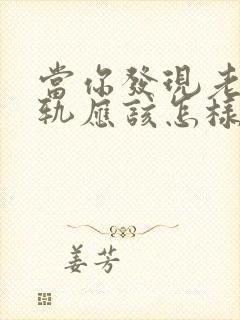 當你發現老
軌應該怎樣
姜芳